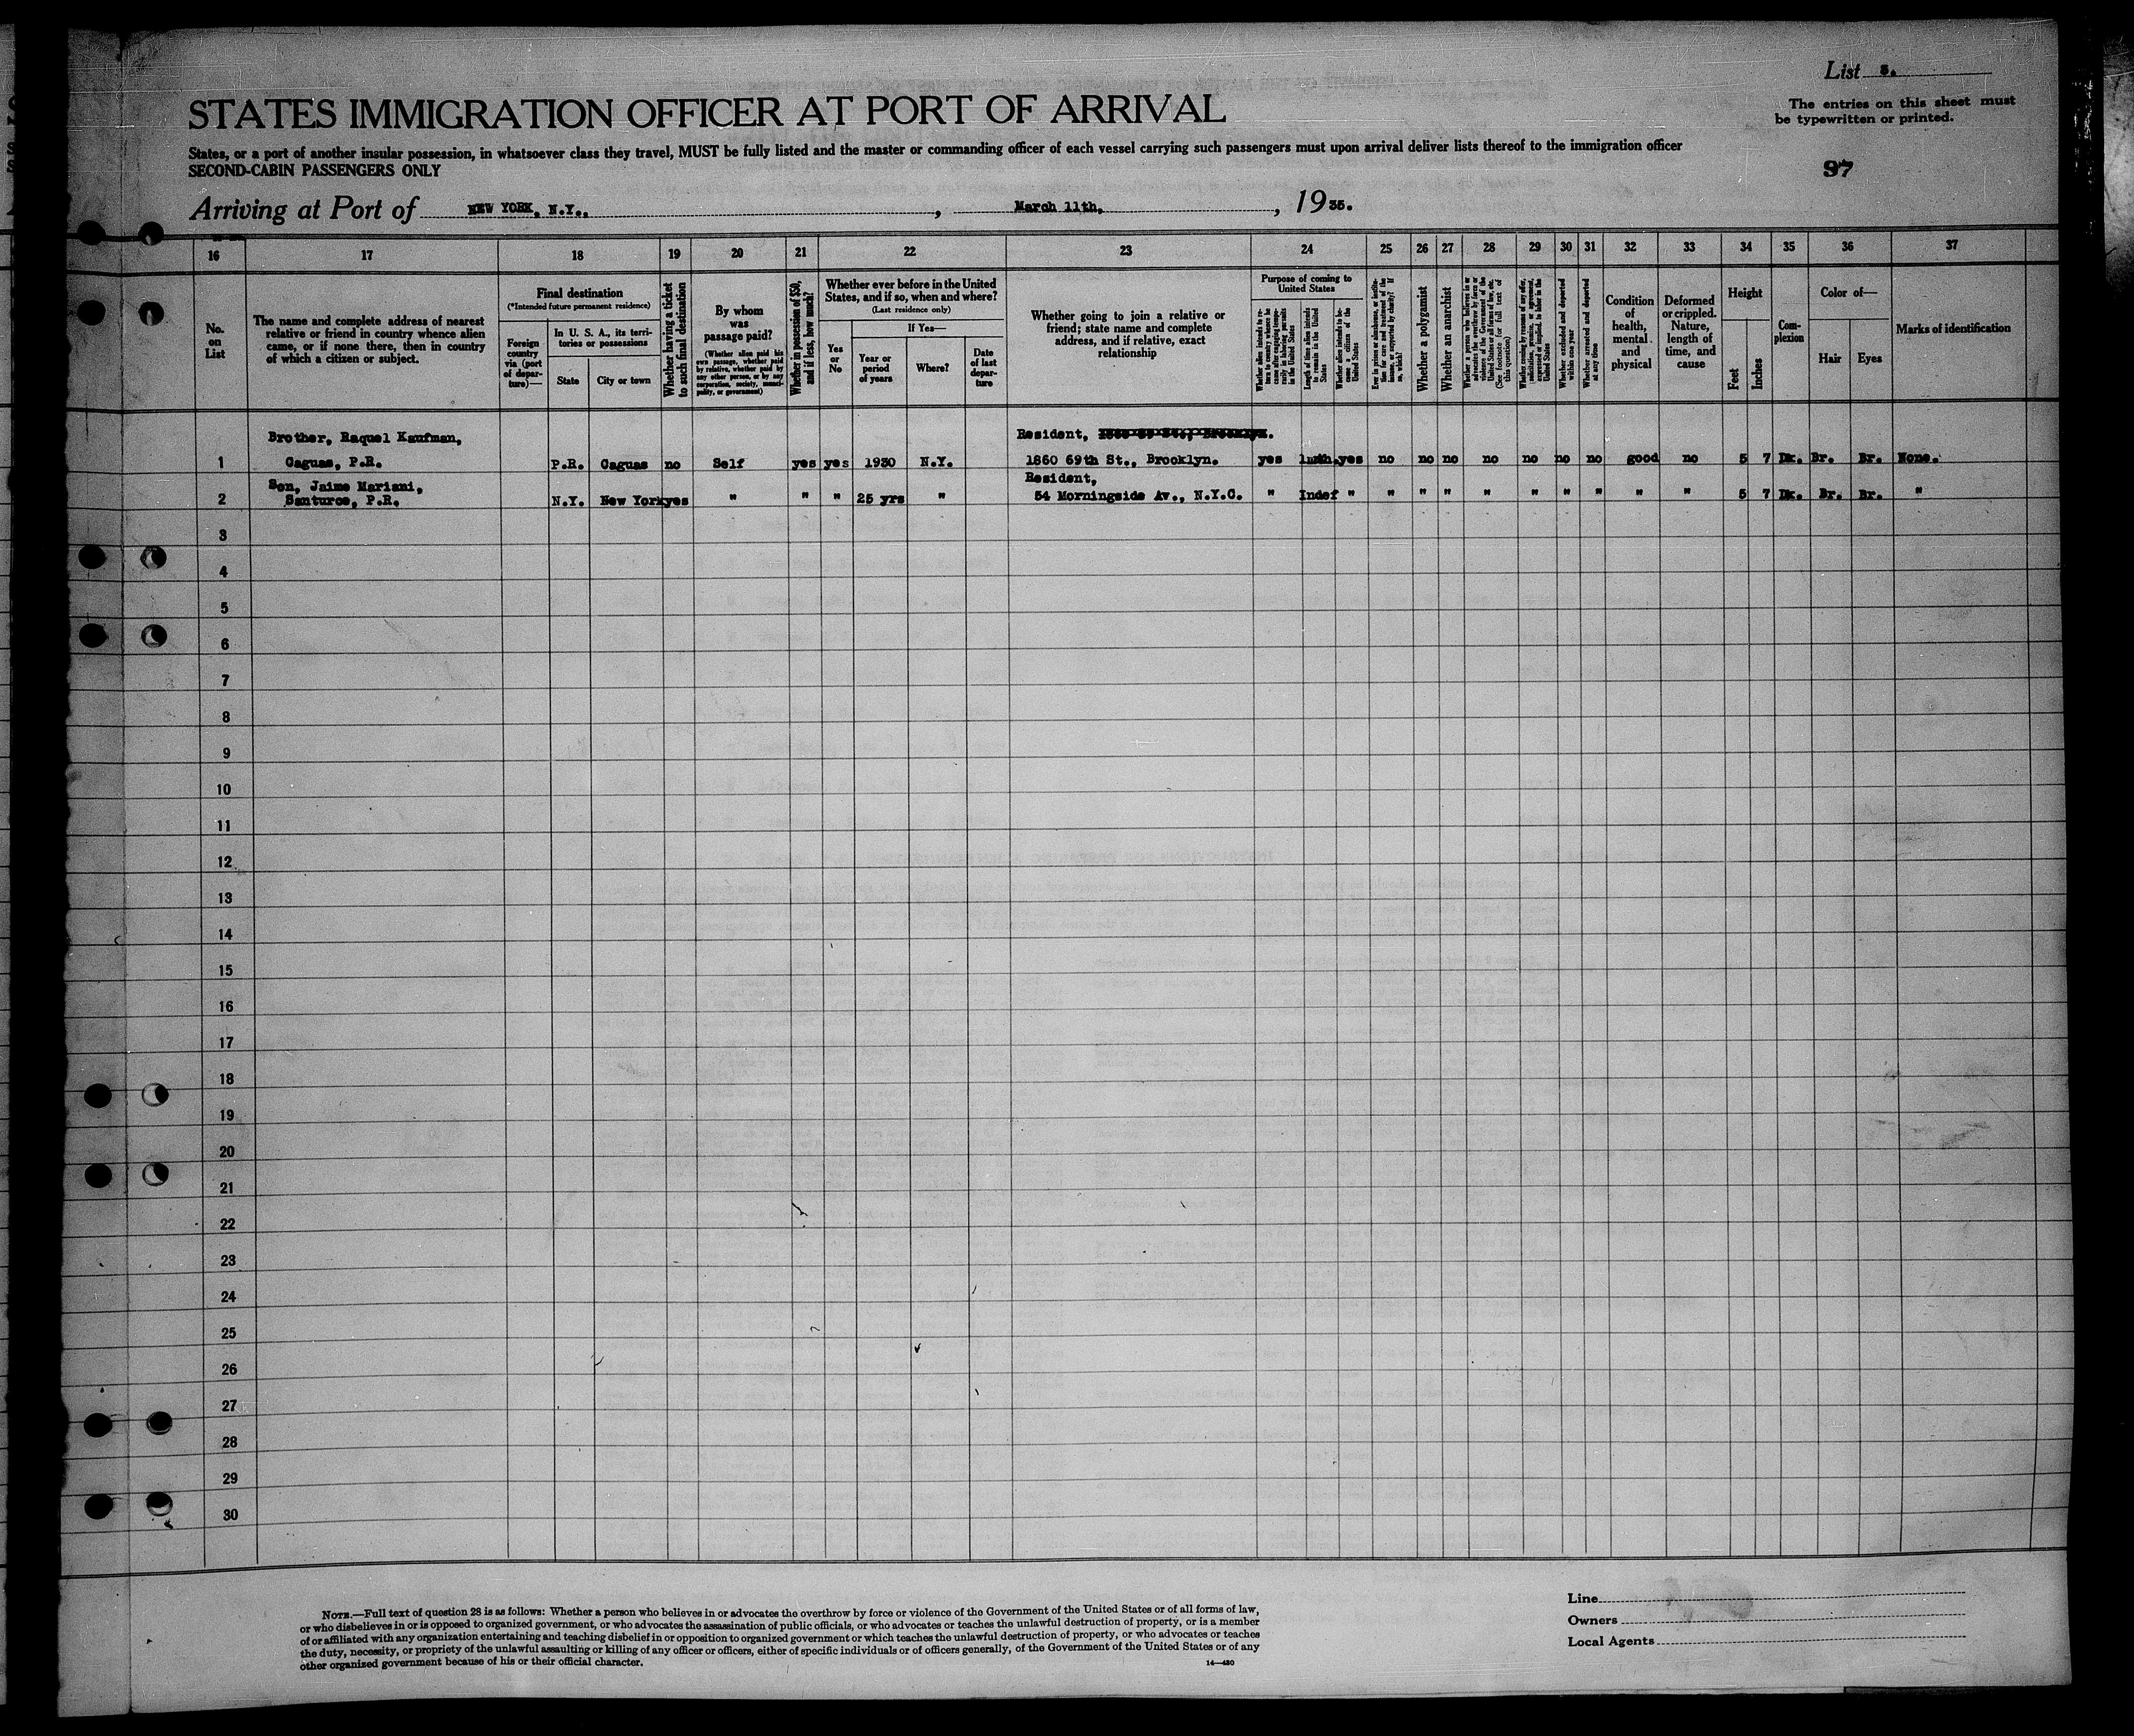 List 5.
STATES IMMIGRATION OFFICER AT PORT OF ARRIVAL
The entries on this sheet must
be typewritten or printed.
States, or a port of another insular possession, in whatsoever class they travel, MUST be fully listed and the master or commanding officer of each vessel carrying such passengers must upon arrival deliver lists thereof to the immigration officer
SECOND-CABIN PASSENGERS ONLY
97
Arriving at Port of NEW YORK, N.Y., , March 11th, , 1935.
16 17 18 19 20 21 22 23 24 25 26 27 28 29 30 31 32 33 34 35 36 37
No. on List
The name and complete address of nearest
relative or friend in country whence alien
came, or if none there, then in country
of which a citizen or subject.
Final destination
(*Intended future permanent residence)
Foreign country via (port of departure)—
In U. S. A., its territories or possessions
State
City or town
Whether having a ticket to such final destination
By whom was passage paid?
(Whether alien paid his own passage, whether paid by relative, whether paid by any other person, or by any corporation, society, municipality, or government)
Whether in possession of $50, and if less, how much?
Whether ever before in the United
States, and if so, when and where?
(Last residence only)
Yes or No
If Yes—
Year or period of years
Where?
Date of last departure
Whether going to join a relative or
friend; state name and complete
address, and if relative, exact
relationship
Purpose of coming to United States
Whether alien intends to return to country whence he came after engaging temporarily in laboring pursuits in the United States
Length of time alien intends to remain in the United States
Whether alien intends to become a citizen of the United States
Ever in prison or almshouse, or institution for care and treatment of the insane, or supported by charity? If so, which?
Whether a polygamist
Whether an anarchist
Whether a person who believes in or advocates the overthrow by force or violence of the Government of the United States or all forms of law, etc. (See footnote for full text of this question)
Whether coming by reason of any offer, solicitation, promise, or agreement, expressed or implied, to labor in the United States
Whether excluded and deported within one year
Whether arrested and deported at any time
Condition of health, mental and physical
Deformed or crippled. Nature, length of time, and cause
Height
Feet
Inches
Complexion
Color of—
Hair
Eyes
Marks of identification
Brother, Raquel Kaufman, Resident,
1 Caguas, P.R. P.R. Caguas no Self yes yes 1930 N.Y. 1860 69th St., Brooklyn. yes yes no no no no no no no good no 5 7 Dk. Br. Br. None.
Son, Jaime Mariani, Resident,
2 Santurce, P.R. N.Y. New York yes " " " 25 yrs " 54 Morningside Av., N.Y.C. " Indef " " " " " " " " " " 5 7 Dk. Br. Br. "
3
4
5
6
7
8
9
10
11
12
13
14
15
16
17
18
19
20
21
22
23
24
25
26
27
28
29
30
NOTE.—Full text of question 28 is as follows: Whether a person who believes in or advocates the overthrow by force or violence of the Government of the United States or of all forms of law,
or who disbelieves in or is opposed to organized government, or who advocates the assassination of public officials, or who advocates or teaches the unlawful destruction of property, or is a member
of or affiliated with any organization entertaining and teaching disbelief in or opposition to organized government or which teaches the unlawful destruction of property, or who advocates or teaches
the duty, necessity, or propriety of the unlawful assaulting or killing of any officer or officers, either of specific individuals or of officers generally, of the Government of the United States or of any
other organized government because of his or their official character.
14—430
Line
Owners
Local Agents